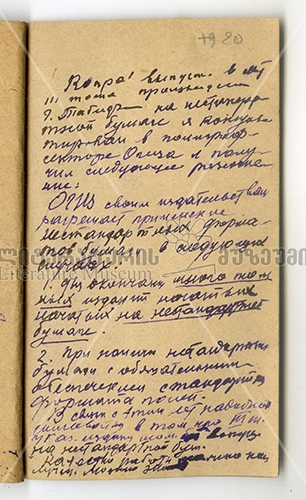 7920
Вопрос выпуск. в свет
III тома произведений
Г. Табидзе на нестандар
тной бумаге я консуль
тировал в полиграф
секторе Огиза и полу
чил следующее разъясне
ние:
ОГИЗ своим издательствам
разрешает применение
нестандартных форма
тов бумаги в следующих
случаях:
1. Для окончания много том
ных изданий начатых
начатых на нестандартной
бумаге.
2. При наличии нестандартной
бумаги с обязательным
обеспечением стандартного
формата полей.
В связи с этим нет надобности
в том что III том
выпуск
на нестандартной бум.